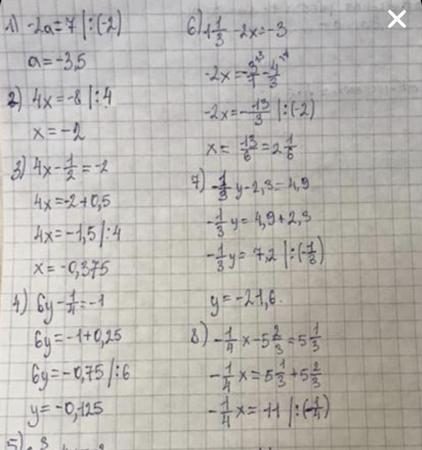 1) -2a=7 |:(-2)
a=-3,5
2) 4x=-8 |:4
x=-2
3) 4x-1/2=-2
4x=-2+0,5
4x=-1,5 |:4
x=-0,375
4) 6y-1/4=-1
6y=-1+0,25
6y=-0,75 |:6
y=-0,125
5)
6) 1 1/3 -2x=-3
-2x=-3/1-4/3
-2x=-13/3 |:(-2)
x=13/6=2 1/6
7) -1/3 y-2,3=4,9
-1/3 y=4,9+2,3
-1/3 y=7,2 |:(-1/3)
y=-21,6
8) -1/4 x-5 2/3=5 1/3
-1/4 x=5 1/3+5 2/3
-1/4 x=11 |:(-1/4)